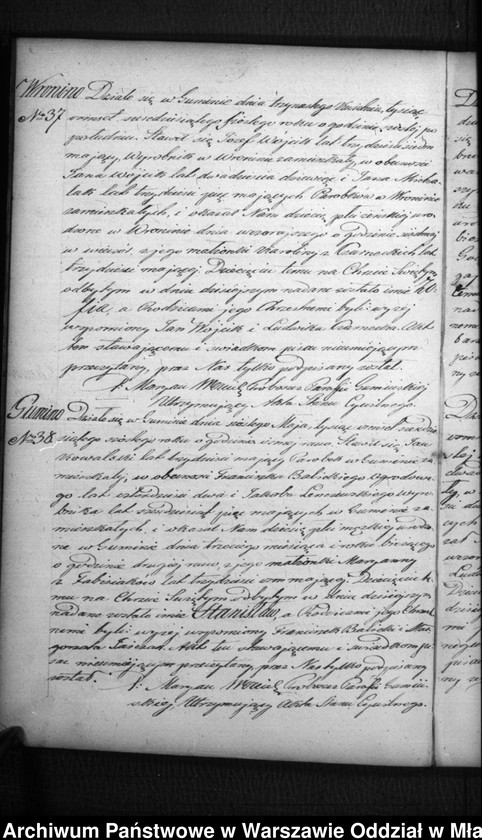 Wronino Działo się w Guminie dnia trzynastego Kwietnia, tysiąc
No 37 ośmset sześćdziesiątego szóstego roku o godzinie szóstej po
południu. Stawił się Józef Wójcik lat trzydzieści siedm
mający, Wyrobnik w Wroninie zamieszkały, w obecności
Jana Wójcik lat dwadzieścia dziewięć i Jana Micha
lak lat trzydzieści pięć mających Parobków w Wroninie
zamieszkałych, i okazał Nam dziecię płci żeńskiej uro
dzone w Wroninie dnia wczorajszego o godzinie siódmej
w wieczór, z jego małżonki Karoliny z Czarneckich lat
trzydzieści mającej. Dziecięciu temu na Chrzcie Świętym
odbytym w dniu dzisiejszym nadane zostało imię Zo-
fia, a Rodzicami jego Chrzestnemi byli wyżej
wspomniony Jan Wójcik i Ludwika. Akt
ten stawającemu i świadkom pisać nieumiejącym
przeczytany, przez Nas tylko podpisany został.
X. Maryan Proboszcz Parafii Gumińskiej
Utrzymujący Akta Stanu Cywilnego.
Gumino Działo się w Guminie dnia szóstego Maja, tysiąc ośmset sześćdzie
No 38 siątego szóstego roku o godzinie ósmej rano. Stawił się Jan
Kowalski lat trzydzieści mający Parobek w Guminie za
mieszkały, w obecności Franciszka Balickiego Ogrodowe-
go lat czterdzieści dwa i Jakóba Wyro
bnika lat pięć mających w Guminie za
mieszkałych, i okazał Nam dziecię płci męzkiej urodzo
ne w Guminie dnia trzeciego miesiąca i roku bieżącego
o godzinie drugiej rano, z jego małżonki Maryanny
z lat trzydzieści ośm mającej. Dziecięciu te
mu na Chrzcie Świętym odbytym w dniu dzisiejszym
nadane zostało imie Stanisław, a Rodzicami jego Chrzest
nemi byli wyżej wspomniony Franciszek Balicki i Mał
gorzata. Akt ten stawającemu i świadkom pi
sać nieumiejącym przeczytany, przez Nas tylko podpisany
został.
X. Maryan Proboszcz Parafii Gumiń
skiej Utrzymujący Akta Stanu Cywilnego.
Archiwum Państwowe w Warszawie Oddział w Mła